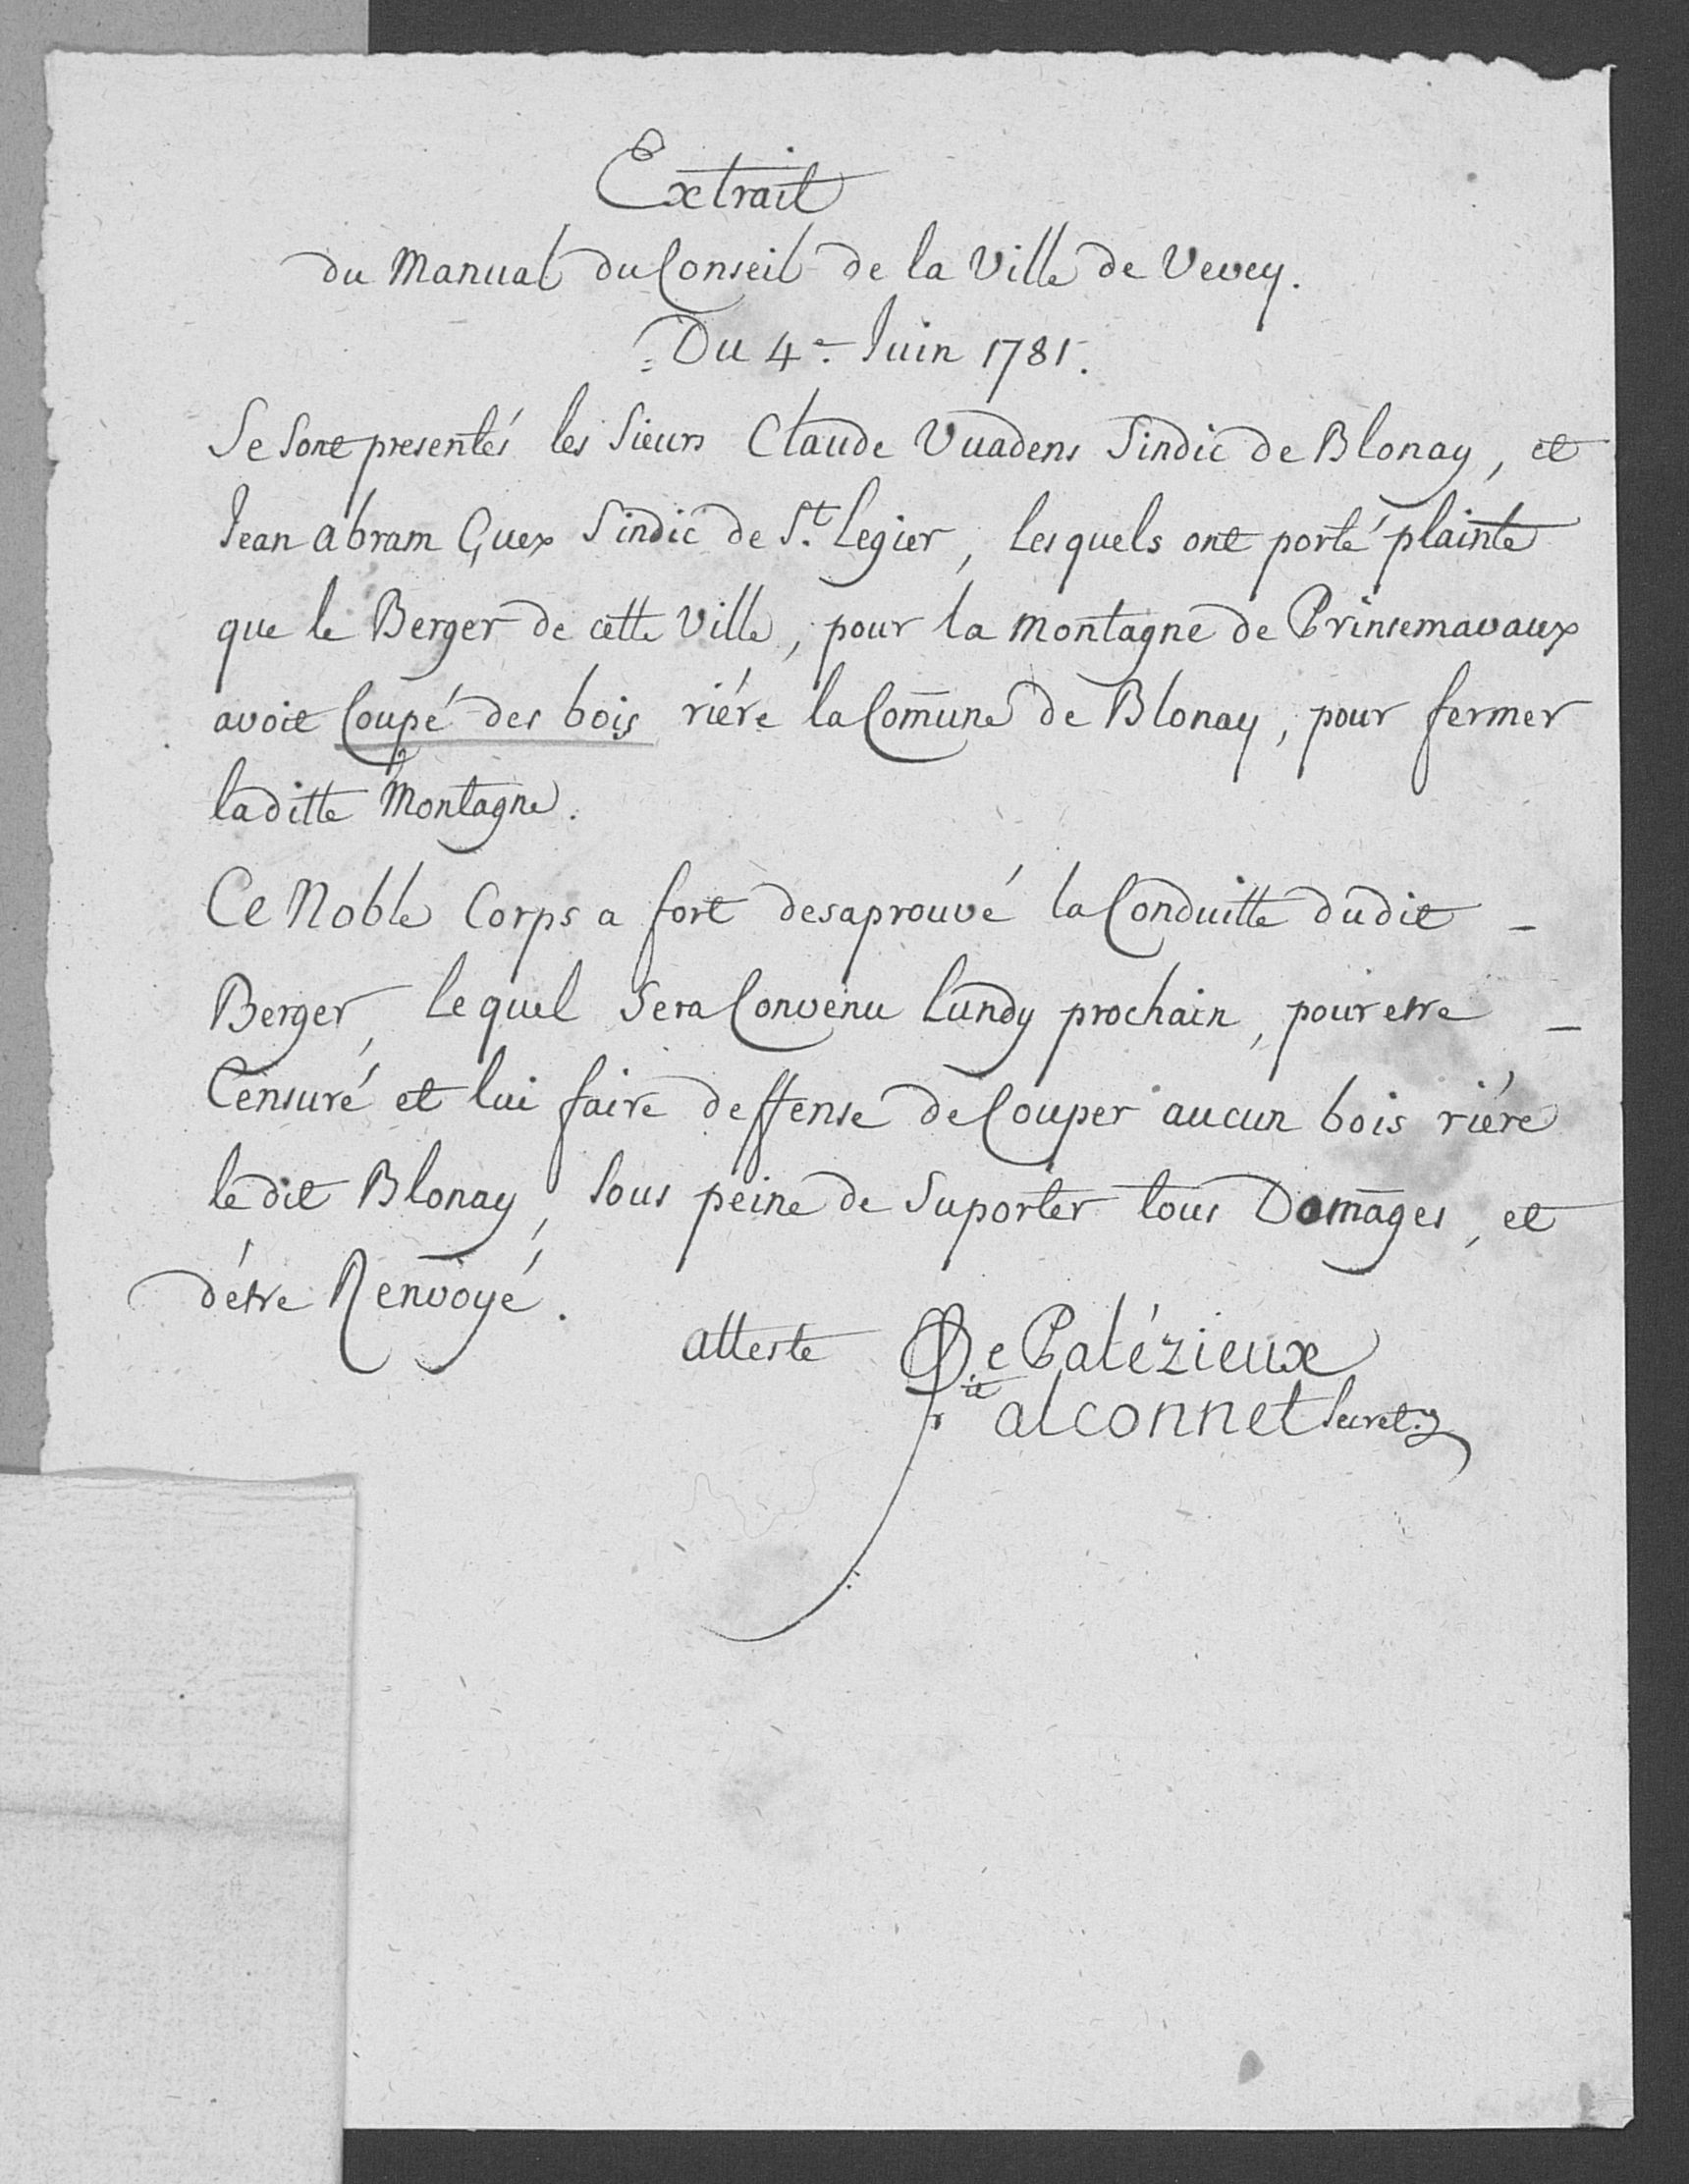 Extrait
du Manual du Conseil de la Ville de Vevey.
Du 4e. Juin 1781.
Se sont presentés les Sieurs Claude Vuadens Sindic de Blonay, et
Jean abram Guex Sindic de St. Legier, lesquels ont porté plainte
que le Berger de cette Ville, pour la montagne de Prinsemavaux
avoit Coupé des bois riére la Com̄une de Blonay, pour fermer
laditte Montagne.
Ce Noble Corps a fort desaprouvé la Conduitte dudit -
Berger, lequel sera Convenu lundy prochain, pour etre -
Censuré et lui faire deffense de Couper aucun bois riére
ledit Blonay, sous peine de Suporter tous Dom̄ages, et
d'étre Renvoyé.
atteste De Palézieux
dit alconnet Secret.